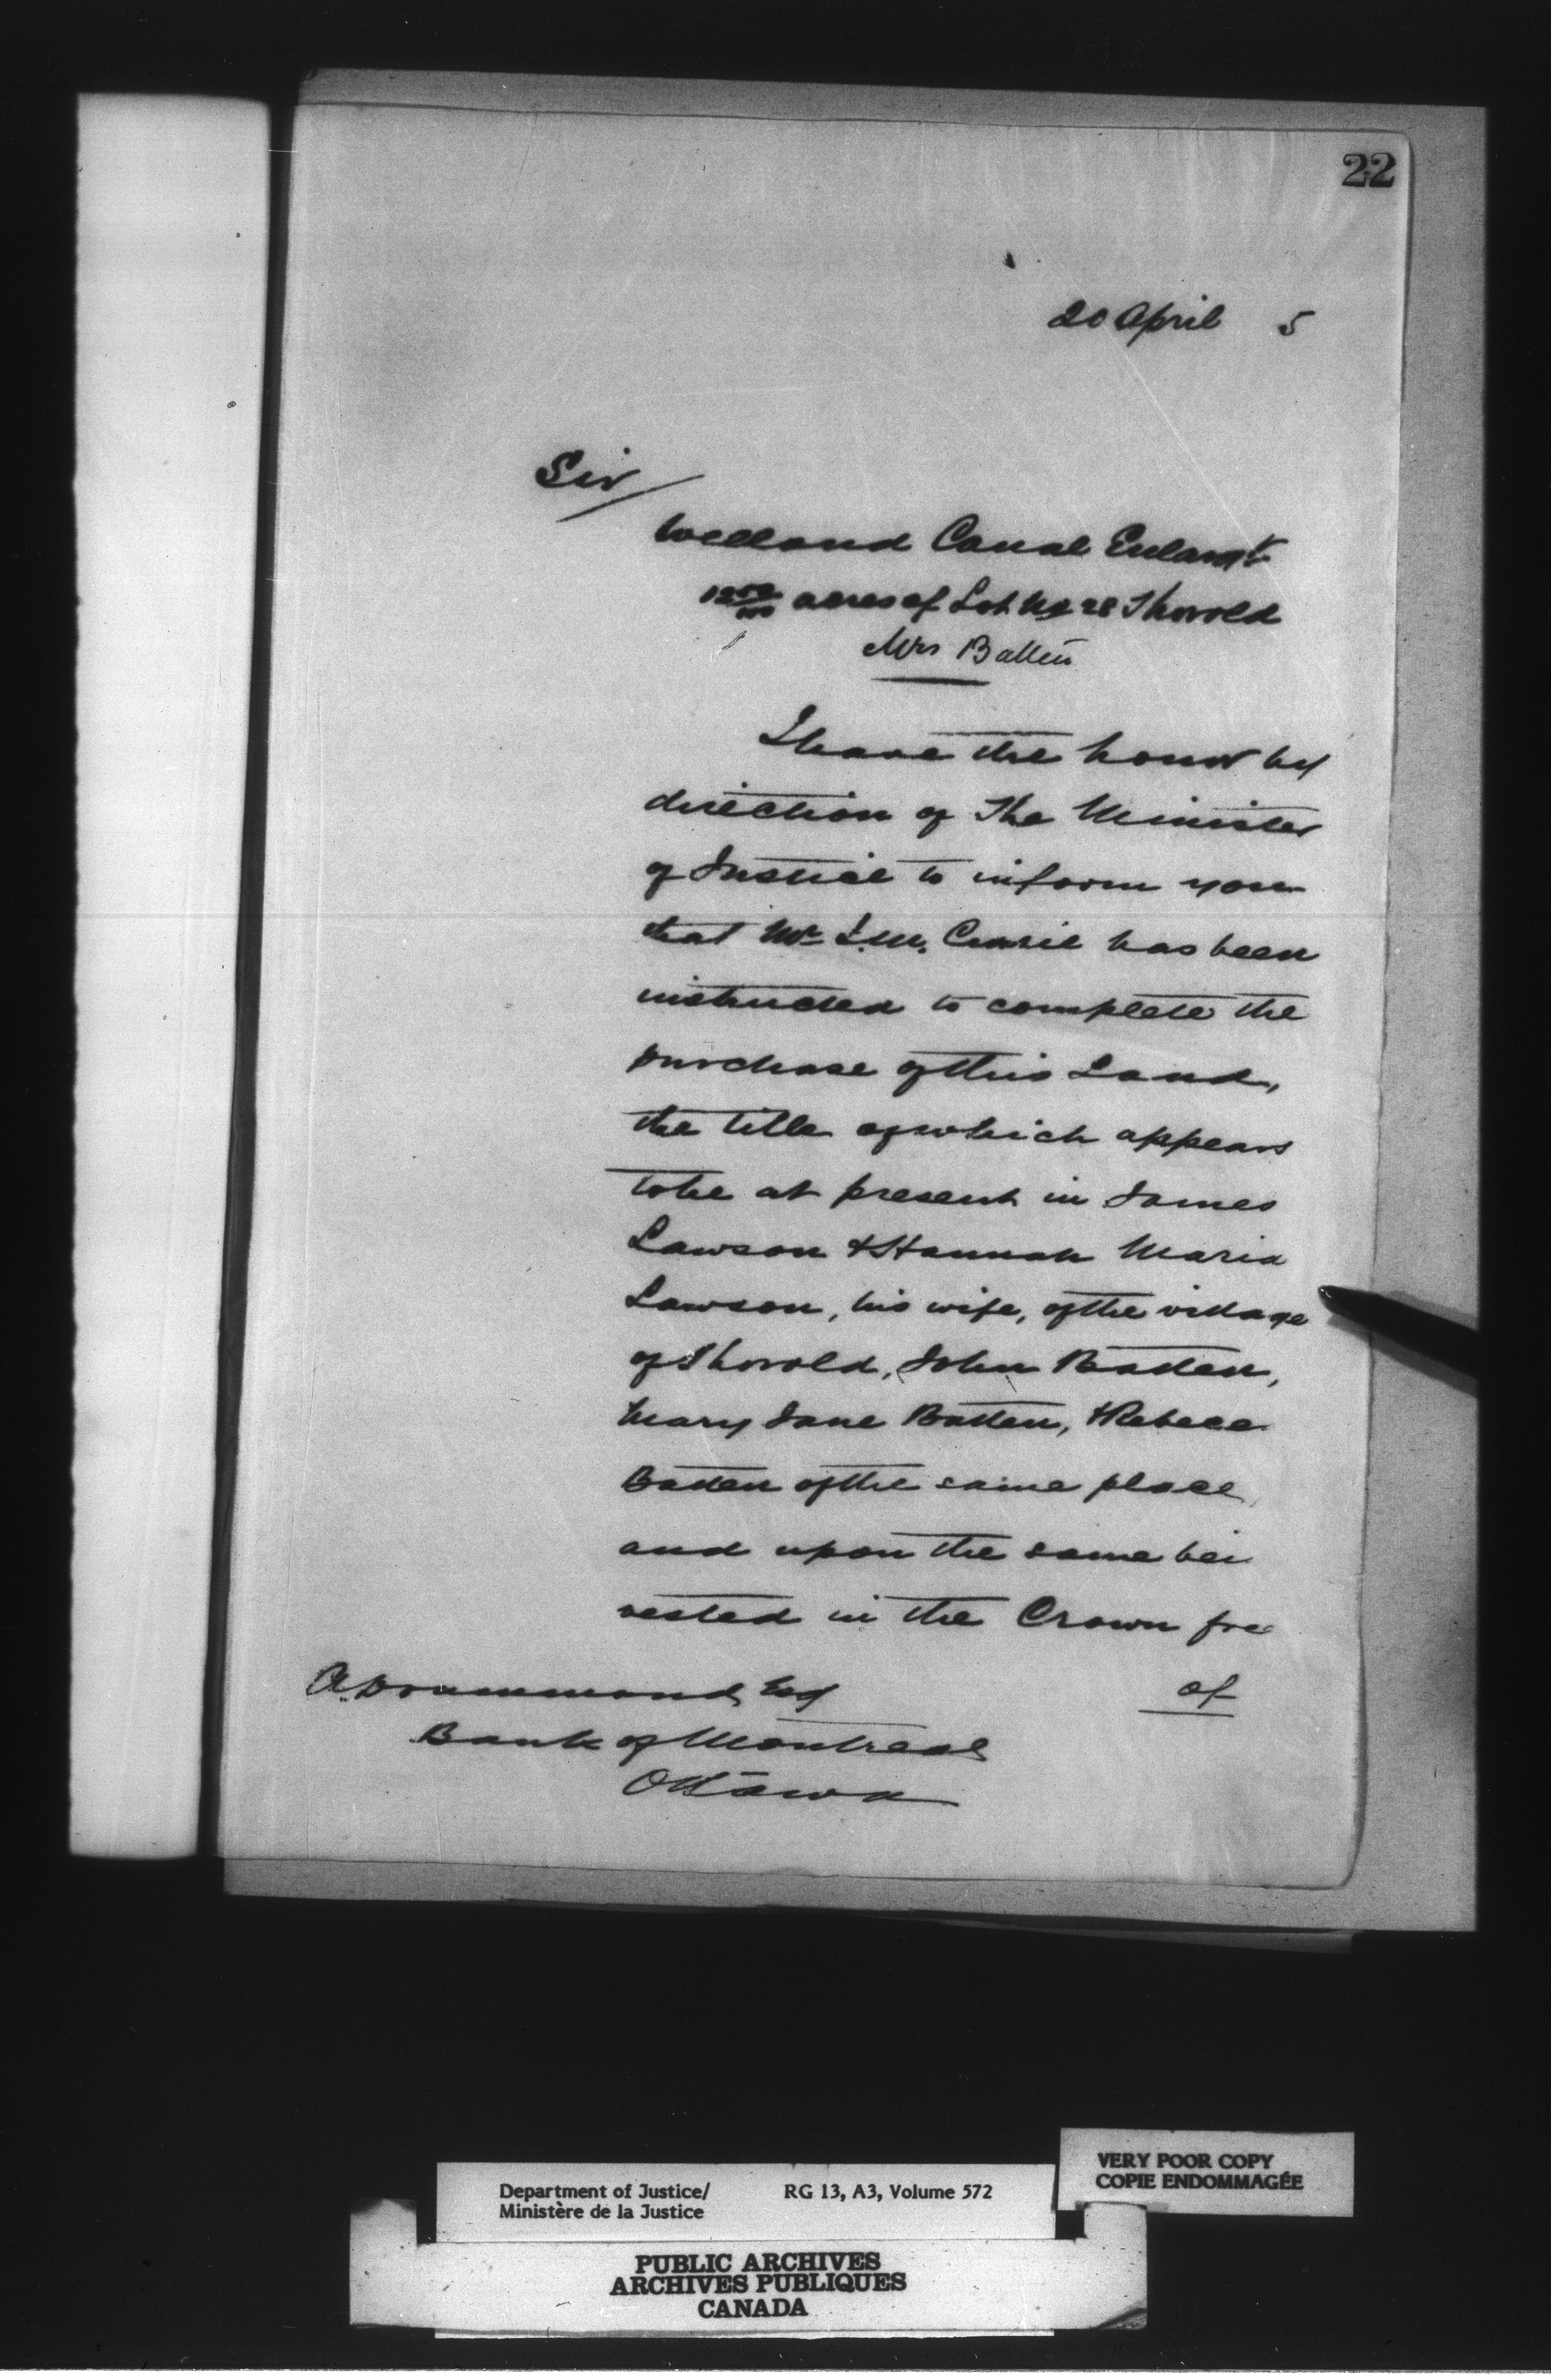 22
20 April 5
Sir
Welland Canal Enlargt
acres of Lot No 28 Thorold
Mrs Batten
I have the honor by
direction of The Minister
of Justice to inform you
that Mr Currie has been
instructed to complete the
purchase of this Land,
the title of which appears
to be at present in James
Lawson & Hannah Maria
Lawson, his wife, of the village
of Thorold, John Batten,
Mary Jane Batten, & Rebecc
Batten of the same place,
and upon the same bei
vested in the Crown free
of
A. Drummond, Esq
Bank of Montreal
Ottawa
VERY POOR COPY
COPIE ENDOMMAGÉE
Department of Justice/ RG 13, A3, Volume 572
Ministère de la Justice
PUBLIC ARCHIVES
ARCHIVES PUBLIQUES
CANADA